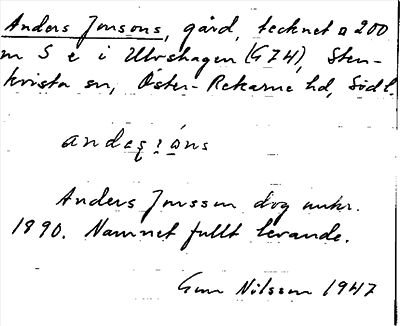 Anders Jonsons, gård, tecknet ¤ 200
m S e i Ulvshagen (G74), Sten-
kvista sn, Öster-Rekarne hd, Södl.
Anders Jonsson dog omkr.
1890. Namnet fullt levande.
Gun Nilsson 1947